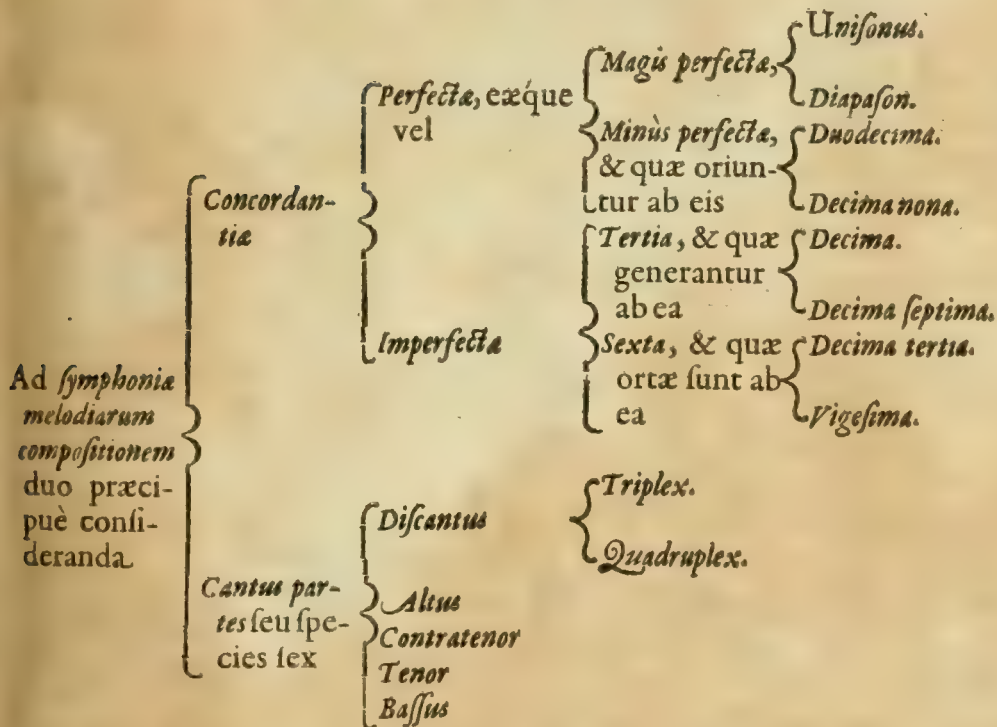 Ad ſymphoniæ
melodiarum
compoſitionem
duo præci-
puè conſi-
deranda
Concordan-
tiæ
Perfectæ, eæque
vel
Magis perfectæ,
Uniſonus.
Diapaſon.
Minùs perfectæ,
& quæ oriun-
tur ab eis
Duodecima.
Decima nona.
Imperfectæ
Tertia, & quæ
generantur
ab ea
Decima.
Decima ſeptima.
Sexta, & quæ
ortæ ſunt ab
ea
Decima tertia.
Vigeſima.
Cantus par-
tes ſeu ſpe-
cies ſex
Diſcantus
Triplex.
Quadruplex.
Altus
Contratenor
Tenor
Baſſus